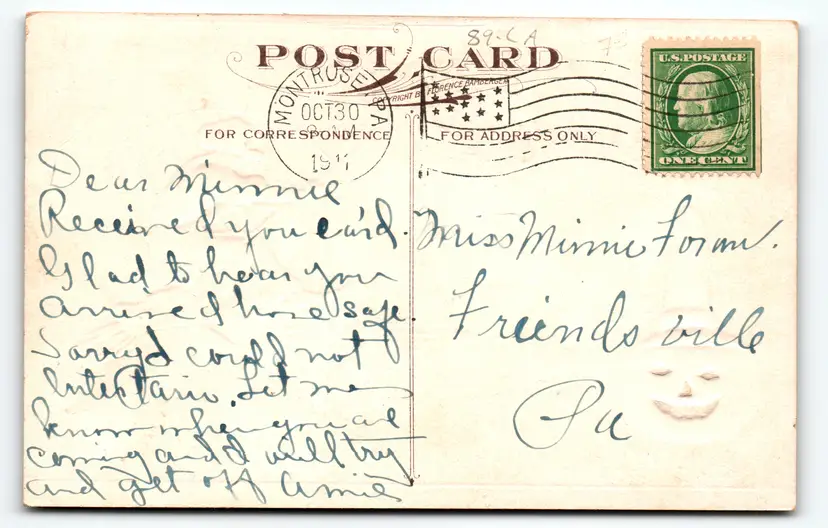 89-C A
POST CARD
COPYRIGHT BY FLORENCE BAMBERGER
MONTROSE, PA
OCT 30
1911
U.S. POSTAGE
ONE CENT
FOR CORRESPONDENCE
FOR ADDRESS ONLY
Dear Minnie
Received you card.
Glad to hear you
arrived home safe
Sorry I could not
Entertain. Let me
know when you are
coming and I will try
and get off Amie
Miss Minnie Foran.
Friendsville
Pa